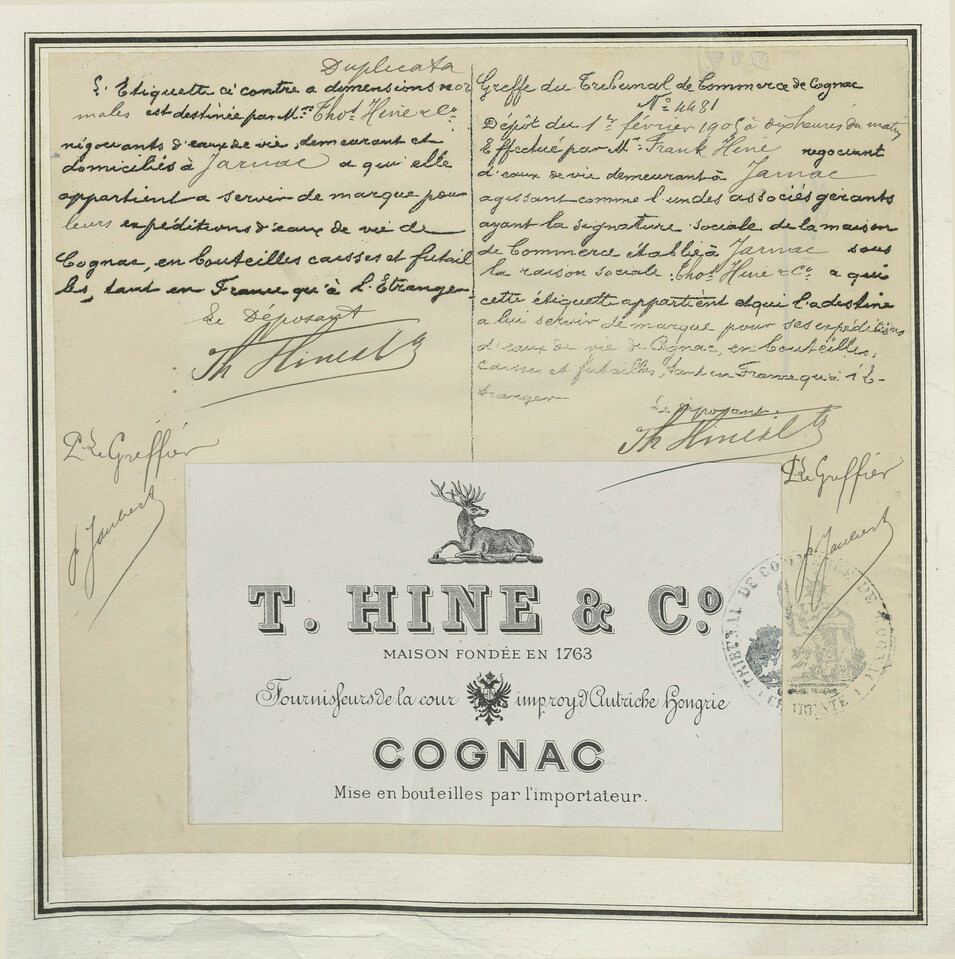 Duplicata
L'Etiquette ci contre a dimensions nor
males est destinée par M.rs Thos. Hine & Co.
négociants d'eaux de vie demeurant et
domiciliés à Jarnac a qui elle
appartient a servir de marque pour
leurs expéditions d'eaux de vie de
Cognac, en bouteilles caisses et futail
les, tant en France qu'à l'Etranger
Le Déposant
Th Hine & Co
Pr Le Greffier
J Jaubert
Greffe du Tribunal de Commerce de Cognac
No. 4481
Dépôt du 1er février 1905 à dix heures du matin
Effectué par Mr. Frank Hine negociant
d'eaux de vie demeurant à Jarnac
agissant comme l'un des associés gérants
ayant la signature sociale de la maison
de Commerce établie à Jarnac sous
la raison sociale Thos. Hine & Co. a qui
cette étiquette appartient et qui l'a destine
a lui servir de marque pour ses expéditions
d'eaux de vie de Cognac, en bouteilles,
caisses et futailles, tant en France qu'à l'E-
tranger
Le déposant
Th Hine & Co
Pr Le Greffier
J Jaubert
T. HINE & Co.
MAISON FONDÉE EN 1763
Fournisseurs de la cour imp roy d'Autriche Hongrie
COGNAC
Mise en bouteilles par l'importateur.
TRIBUNAL DE COMMERCE DE COGNAC
CHARENTE